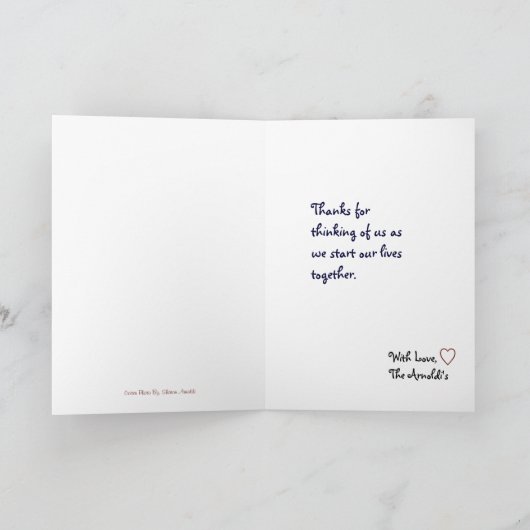 Thanks for
thinking of us as
we start our lives
together.
With Love,
The Arnoldi's
Cover Photo By: Sharon Arnoldi